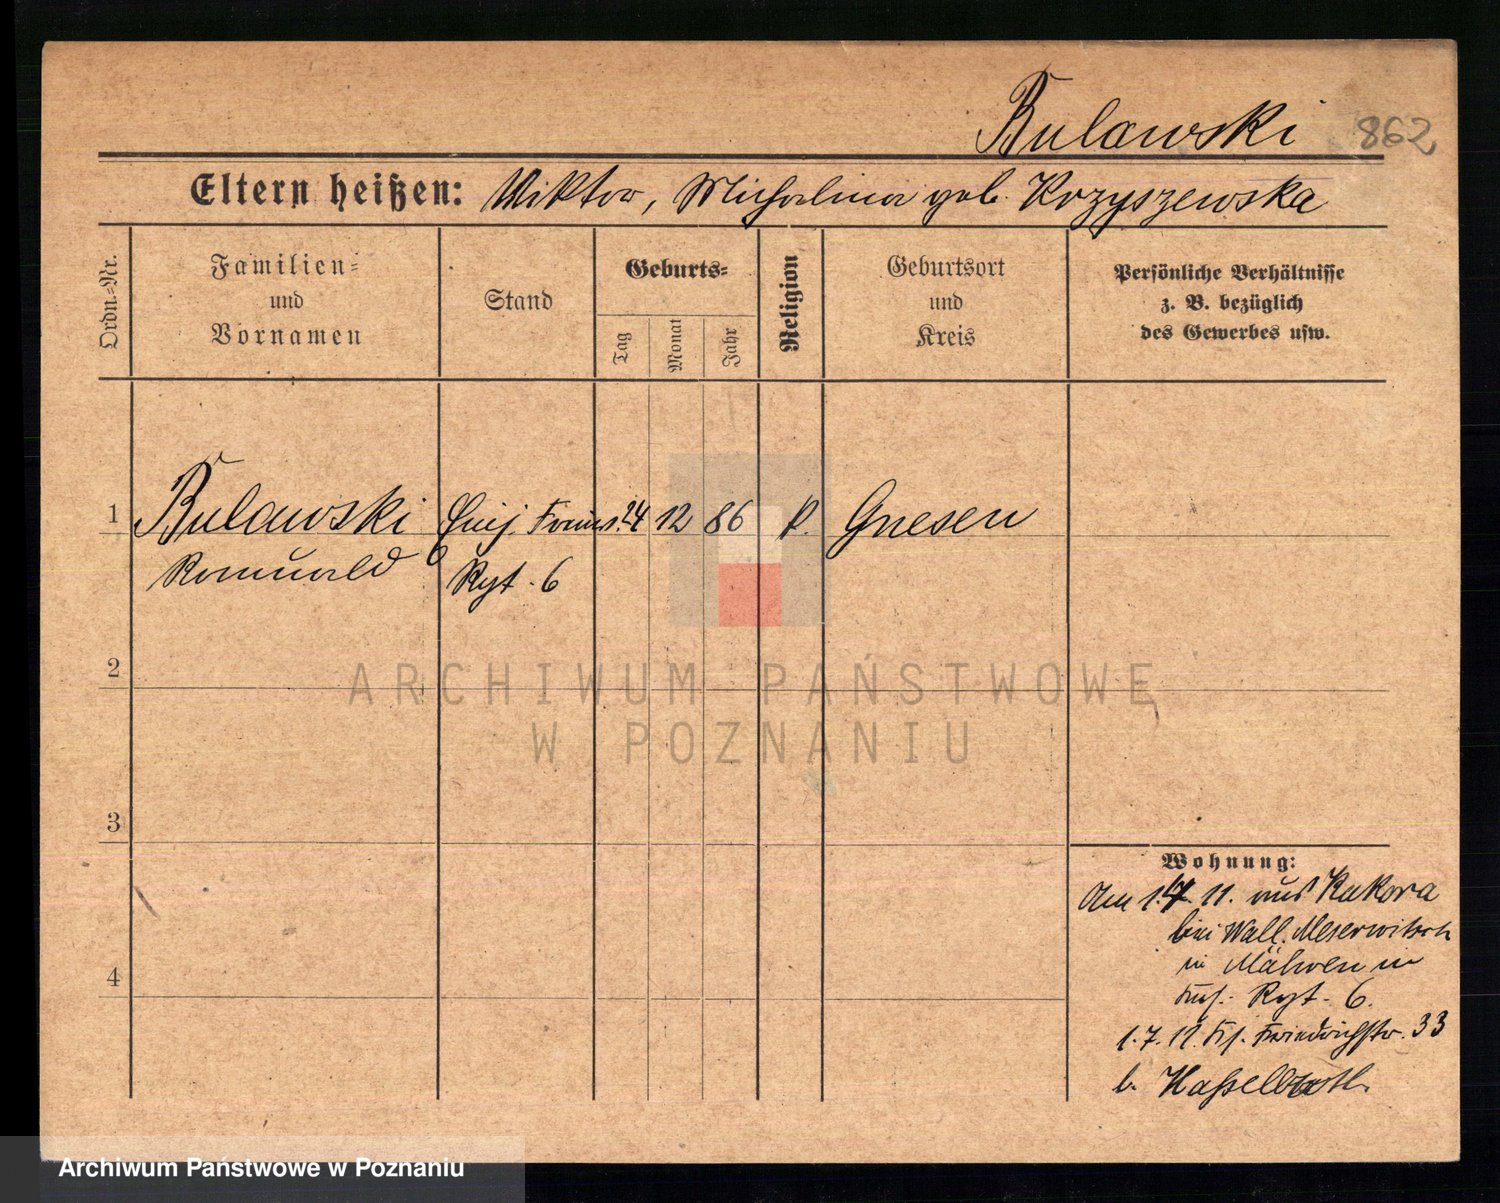 Bulawski 862
Eltern heißen: Wiktor, Michalina geb. Krzyszewska
Ordn.=Nr.
Familien=
und
Vornamen
Stand
Geburts=
Tag
Monat
Jahr
Religion
Geburtsort
und
Kreis
Persönliche Verhältnisse
z. B. bezüglich
des Gewerbes usw.
1 Bulawski 24 12 86 k. Gnesen
Romuald Rgt. 6
2
3
4
Wohnung:
Am 11. aus Rakova
bei Wall. Meserwitsch
in Mähren in
Rgt. 6.
1. 7. 11. Friedrichstr. 33
b.
ARCHIWUM PAŃSTWOWE
W POZNANIU
Archiwum Państwowe w Poznaniu